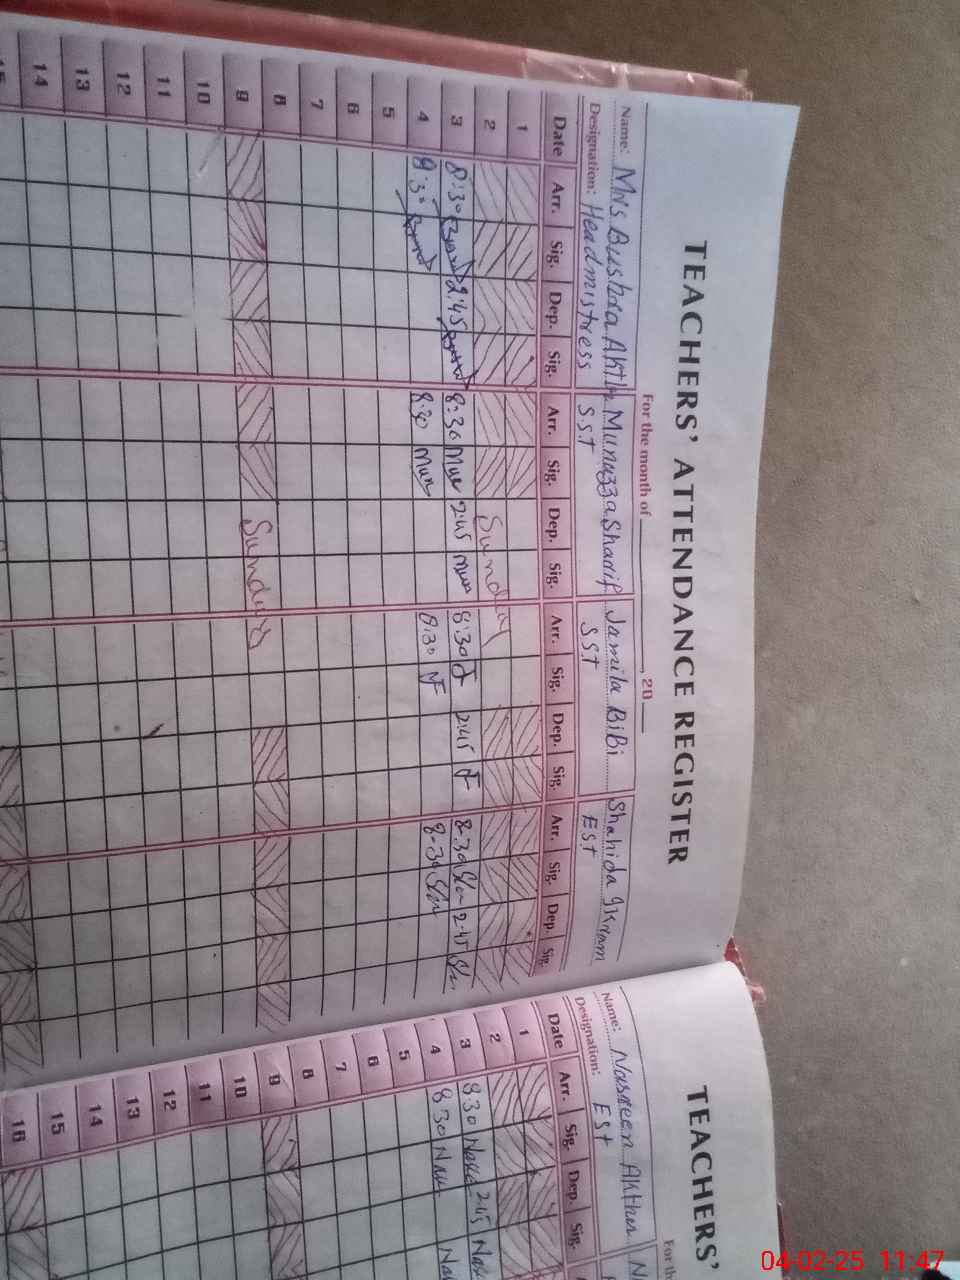 TEACHERS' ATTENDANCE REGISTER
For the month of , 20
Name: Mrs. Bushra Akthr Munazza Sharif Jamila BiBi Shahida Ikram
Designation: Headmistress S.S.T SST EST
Date Arr. Sig. Dep. Sig. Arr. Sig. Dep. Sig. Arr. Sig. Dep. Sig. Arr. Sig. Dep. Sig.
1
2 Sunday
3 8:30 2:45 8:30 Mun 2:45 Mun 8:30 2:45 8-30 2-45
4 8:30 8:30 Mun 8:30 8-30
5
6
7
8
9 Sunday
10
11
12
13
14
15
TEACHERS'
For th
Name: Nasreen Akhter N
Designation: EST
Date Arr. Sig. Dep. Sig.
1
2
3 8 30 2:45
4 8 30
5
6
7
8
9
10
11
12
13
14
15
16
04-02-25 11:47